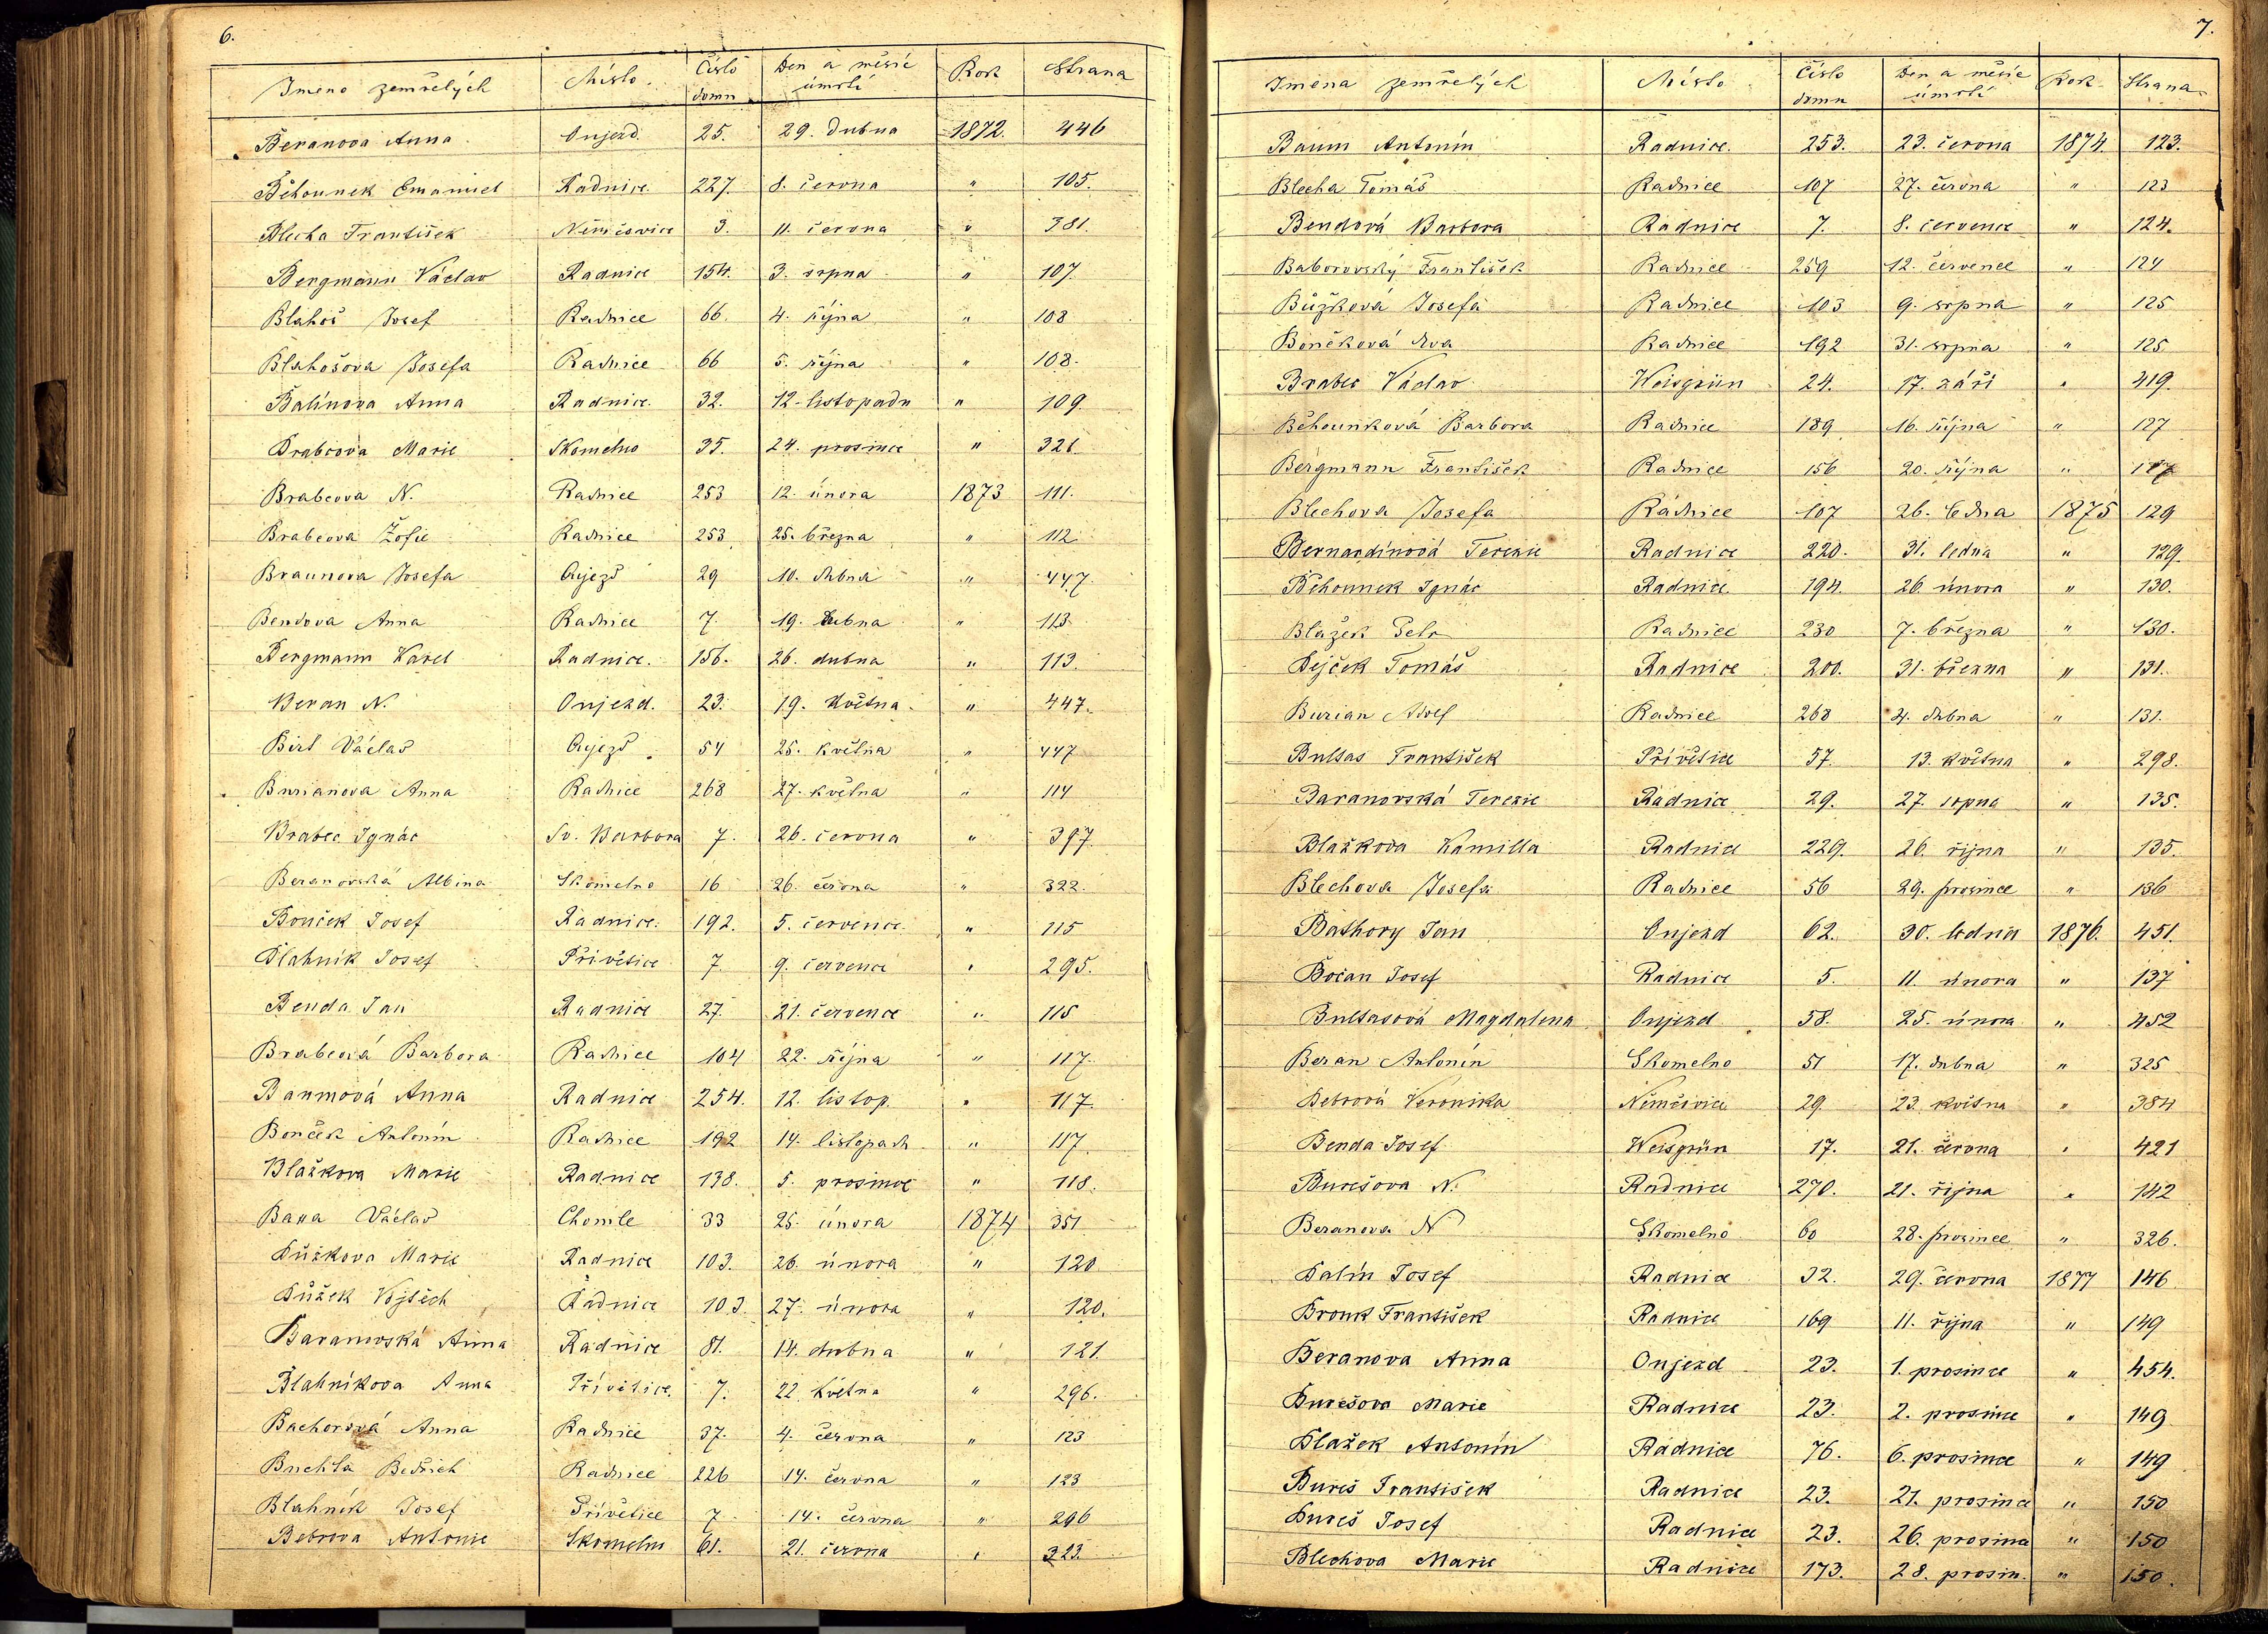 6.
Jméno zemřelých Místo. Číslo domu Den a měsíc úmrtí Rok Strana
Beranova Anna Oujezd. 25. 29. dubna 1872. 446
Běhounek Emanuel Radnice 227. 8. června " 105.
Blecha František Němčovice 3. 11. června " 381.
Bergmann Václav Radnice 154. 3. srpna " 107.
Blahoš Josef Radnice 66. 4. října " 108
Blahošova Josefa Radnice 66 5. října " 108.
Balínova Anna Radnice. 32. 12. listopadu " 109.
Brabcova Marie Skomelno 35. 24. prosince " 321.
Brabcova N. Radnice 253 12. února 1873 111.
Brabcova Žofie Radnice 253 25. března " 112
Braunova Josefa Oujezd 29 10. dubna " 447.
Bendova Anna Radnice 7. 19. dubna " 113.
Bergmann Karel Radnice. 156. 26. dubna " 113.
Beran N. Oujezd. 23. 19. května. " 447.
Birt Václav Oujezd. 54 25. května " 447
Burianova Anna Radnice 268 27. května " 114
Brabec Ignác Sv. Barbora 7. 26. června " 397.
Beranovská Albina Skomelno 16 26. června " 322.
Bouček Josef Radnice. 192. 5. července. " 115
Blahník Josef Přívětice 7. 9. července " 295.
Benda Jan Radnice 27. 21. července " 115
Brabcová Barbora Radnice 104 22. října " 117.
Baumová Anna Radnice 254. 12. listop. " 117.
Bouček Antonín Radnice 192 14. listopadu " 117.
Blažkova Marie Radnice 138. 5. prosince " 118.
Baxa Václav Chomle 33 25. února 1874 351
Bůžkova Marie Radnice 103. 26. února " 120
Bůžek Vojtěch Radnice 103. 27. února " 120.
Baranovská Anna Radnice 81. 14. dubna " 121.
Blahníkova Anna Přívětice. 7. 22. května " 296.
Bachorová Anna Radnice 37. 4. června " 123
Buchta Bedřich Radnice 226 14. června " 123
Blahník Josef Přívětice 7 14. června " 296
Bebrova Antonie Skomelno 61. 21. června " 323.
7.
Jména zemřelých Místo Číslo domu Den a měsíc úmrtí Rok Strana.
Baum Antonín Radnice. 253. 23. června 1874. 123.
Blecha Tomáš Radnice 107 27. června " 123
Bendová Barbora Radnice 7. 8. července " 124.
Baborovský František Radnice 259 12. července " 124
Bůžková Josefa Radnice 103 9. srpna " 125
Boučková Eva Radnice 192 31. srpna " 125
Brabec Václav Weisgrün 24. 17. září " 419.
Běhounková Barbora Radnice 189 16. října " 127
Bergmann František Radnice 156 20. října " 127
Blechova Josefa Radnice 107 26. ledna 1875 129
Bernardínová Terezie Radnice 220. 31. ledna " 129.
Běhounek Ignác Radnice. 194. 26. února " 130.
Blažek Petr Radnice 230 7. března " 130.
Bejček Tomáš Radnice 200. 31. března " 131.
Burian Adolf Radnice 268 4. dubna " 131.
Bultas František Přívětice 57. 13. května " 298.
Baranovská Terezie Radnice 29. 27. srpna " 135.
Blažkova Kamilla Radnice 229. 26. října " 135.
Blechova Josefa Radnice 56 29. prosince " 136
Bathory Jan Oujezd 62. 30. ledna 1876. 451.
Bočan Josef Radnice 5. 11. února " 137
Bultasová Magdalena Oujezd 58. 25. února " 452
Beran Antonín Skomelno 51 17. dubna " 325
Bebrová Veronika Němčovice 29 23. května " 384
Benda Josef Weisgrün 17. 21. června " 421
Burešova N. Radnice 270. 21. října " 142
Beranova N Skomelno 60 28. prosince " 326.
Balín Josef Radnice 32. 29. června 1877 146
Brouk František Radnice 169 11. října " 149
Beranova Anna Oujezd 23. 1. prosince " 454.
Burešova Marie Radnice 23. 2. prosince " 149
Blažek Antonín Radnice 76. 6. prosince " 149
Bureš František Radnice 23. 21. prosince " 150
Bureš Josef Radnice 23. 26. prosince " 150
Blechova Marie Radnice 173. 28. prosin. " 150.